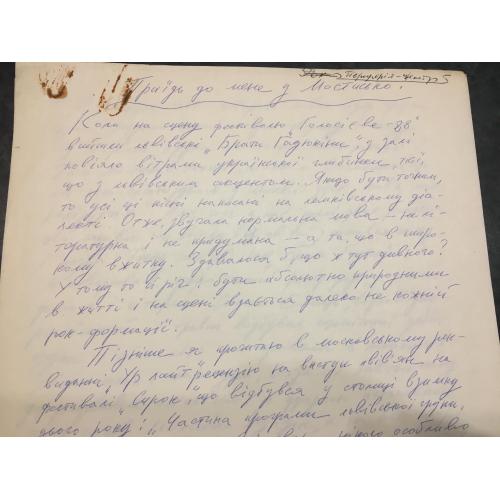 Периферія-центр 5
Приїдь до мене у Мостисько.
Коли на сцену фестивалю Голосієве-88"
вийшли львівські „Брати Гадюкіни", у залі
повіяло вітрами української глибинки, тієї,
що з львівським акцентом. Якщо бути точним,
то усі ці пісні написана на лемківському діа-
лекті. Отже, звучала нормальна мова – не лі-
тературна і не придумана – а та, що в широ-
кому вжитку. Здавалося б, що ж тут дивного?
У тому то й річ: бути абсолютно природними
в житті і на сцені вдається далеко не кожній
рок-формації.
Пізніше я прочитаю в московському рок-
виданні „Ур лайт" рецензію на виступ львів'ян на
фестивалі „Сирок", що відбувся у столиці взимку
цього року: „Частина програми львівської групи,
особливо